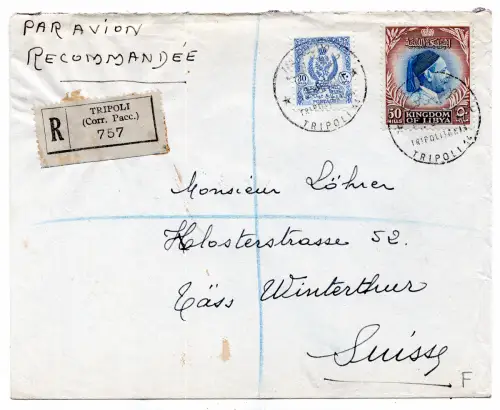 PAR AVION
RECOMMANDÉE
R
TRIPOLI
(Corr. Pacc.)
757
30
TRIPOLI
50
MILLS
KINGDOM
OF LIBYA
TRIPOLITANIA
TRIPOLI
Monsieur Löhrer
Klosterstrasse 52.
Töss Winterthur
Suisse
F